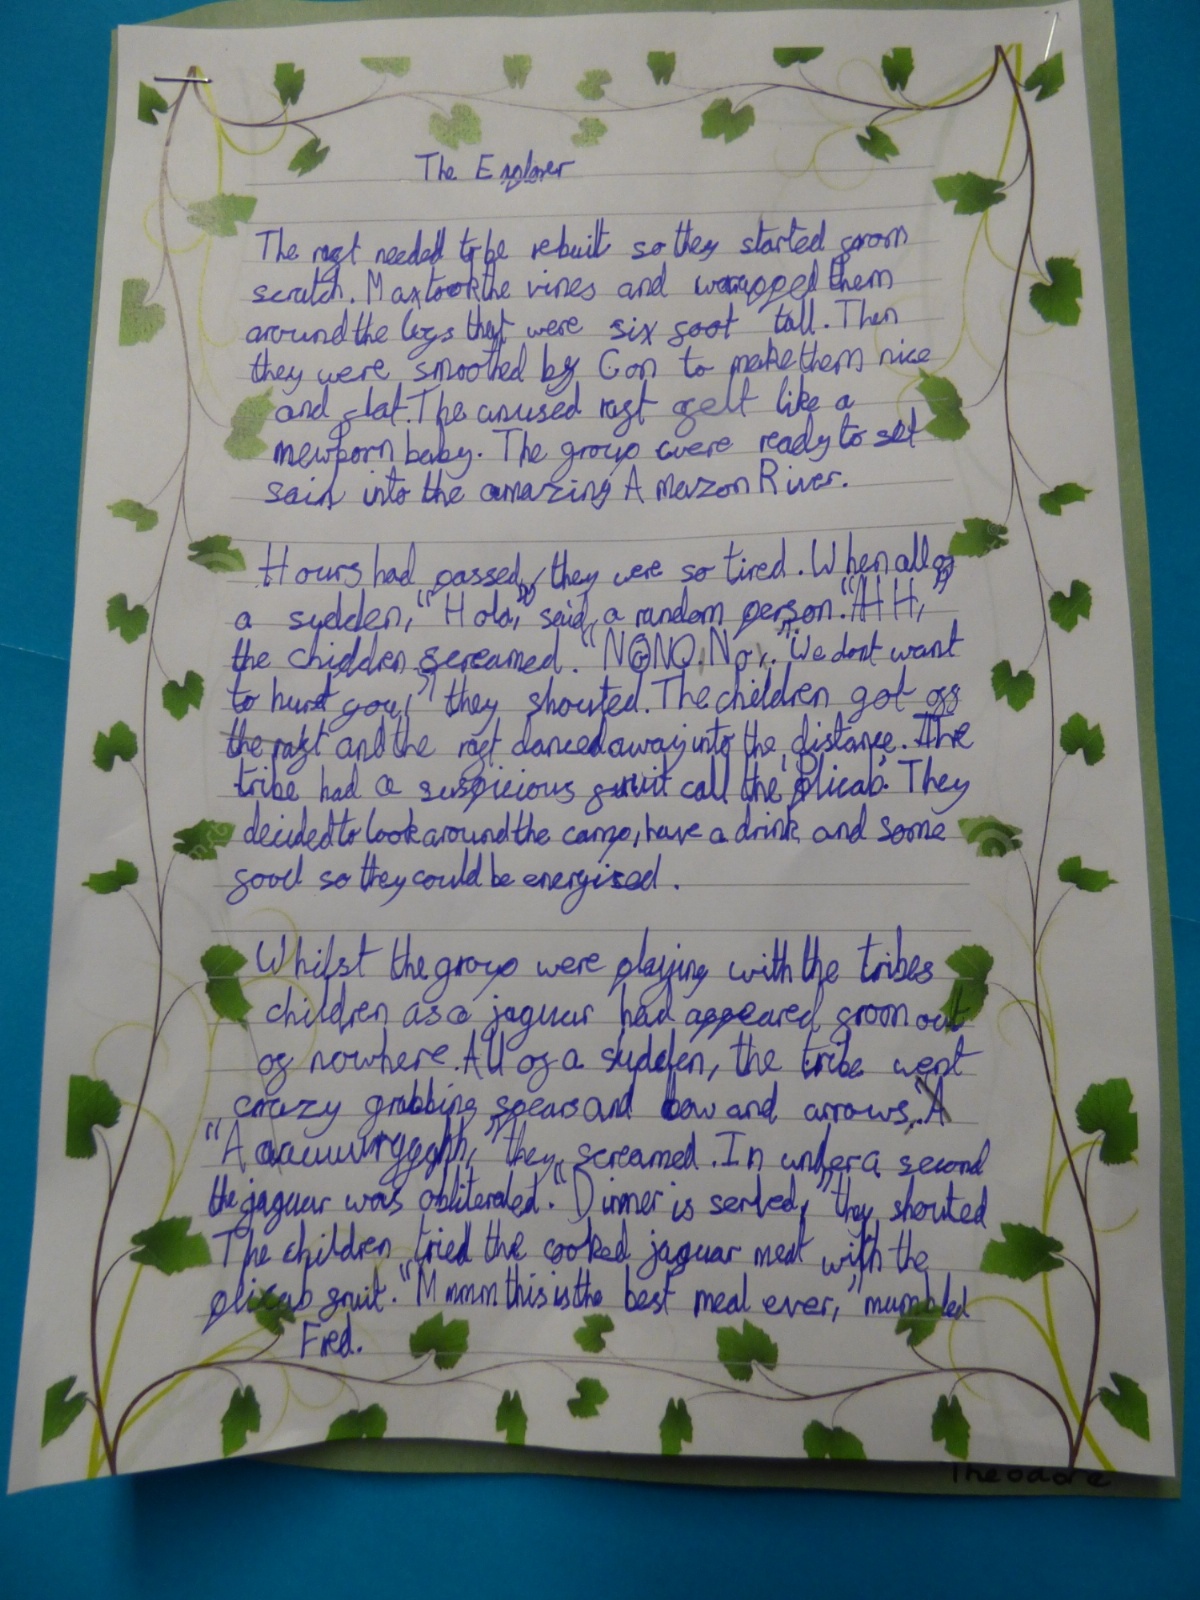 The Explorer
The raft needed to be rebuilt so they started from
scratch. Max took the vines and wrapped them
around the logs that were six foot tall. Then
they were smoothed by Con to make them nice
and flat. The unused raft felt like a
newborn baby. The group were ready to set
sail into the amazing Amazon River.
Hours had passed, they were so tired. When all of
a sudden, "Hola," said, a random person. "AHH,"
the children screamed. "NONO.No,." "We dont want
to hurt you," they shouted. The children got off
the raft and the raft danced away into the distance. The
tribe had a suspicious fruit call the plicab. They
decided to look around the camp, have a drink and some
food so they could be energised.
Whilst the group were playing with the tribes
children as a jaguar had appeared from out
of nowhere. All of a sudden, the tribe went
crazy grabbing spears and bow and arrows.
"Aaauuurggghh," they screamed. In under a second
the jaguar was obliterated. "Dinner is served," they shouted
The children tried the cooked jaguar meat with the
plicab fruit. "Mmmm this is the best meal ever," mumbled
Fred.
Theodore